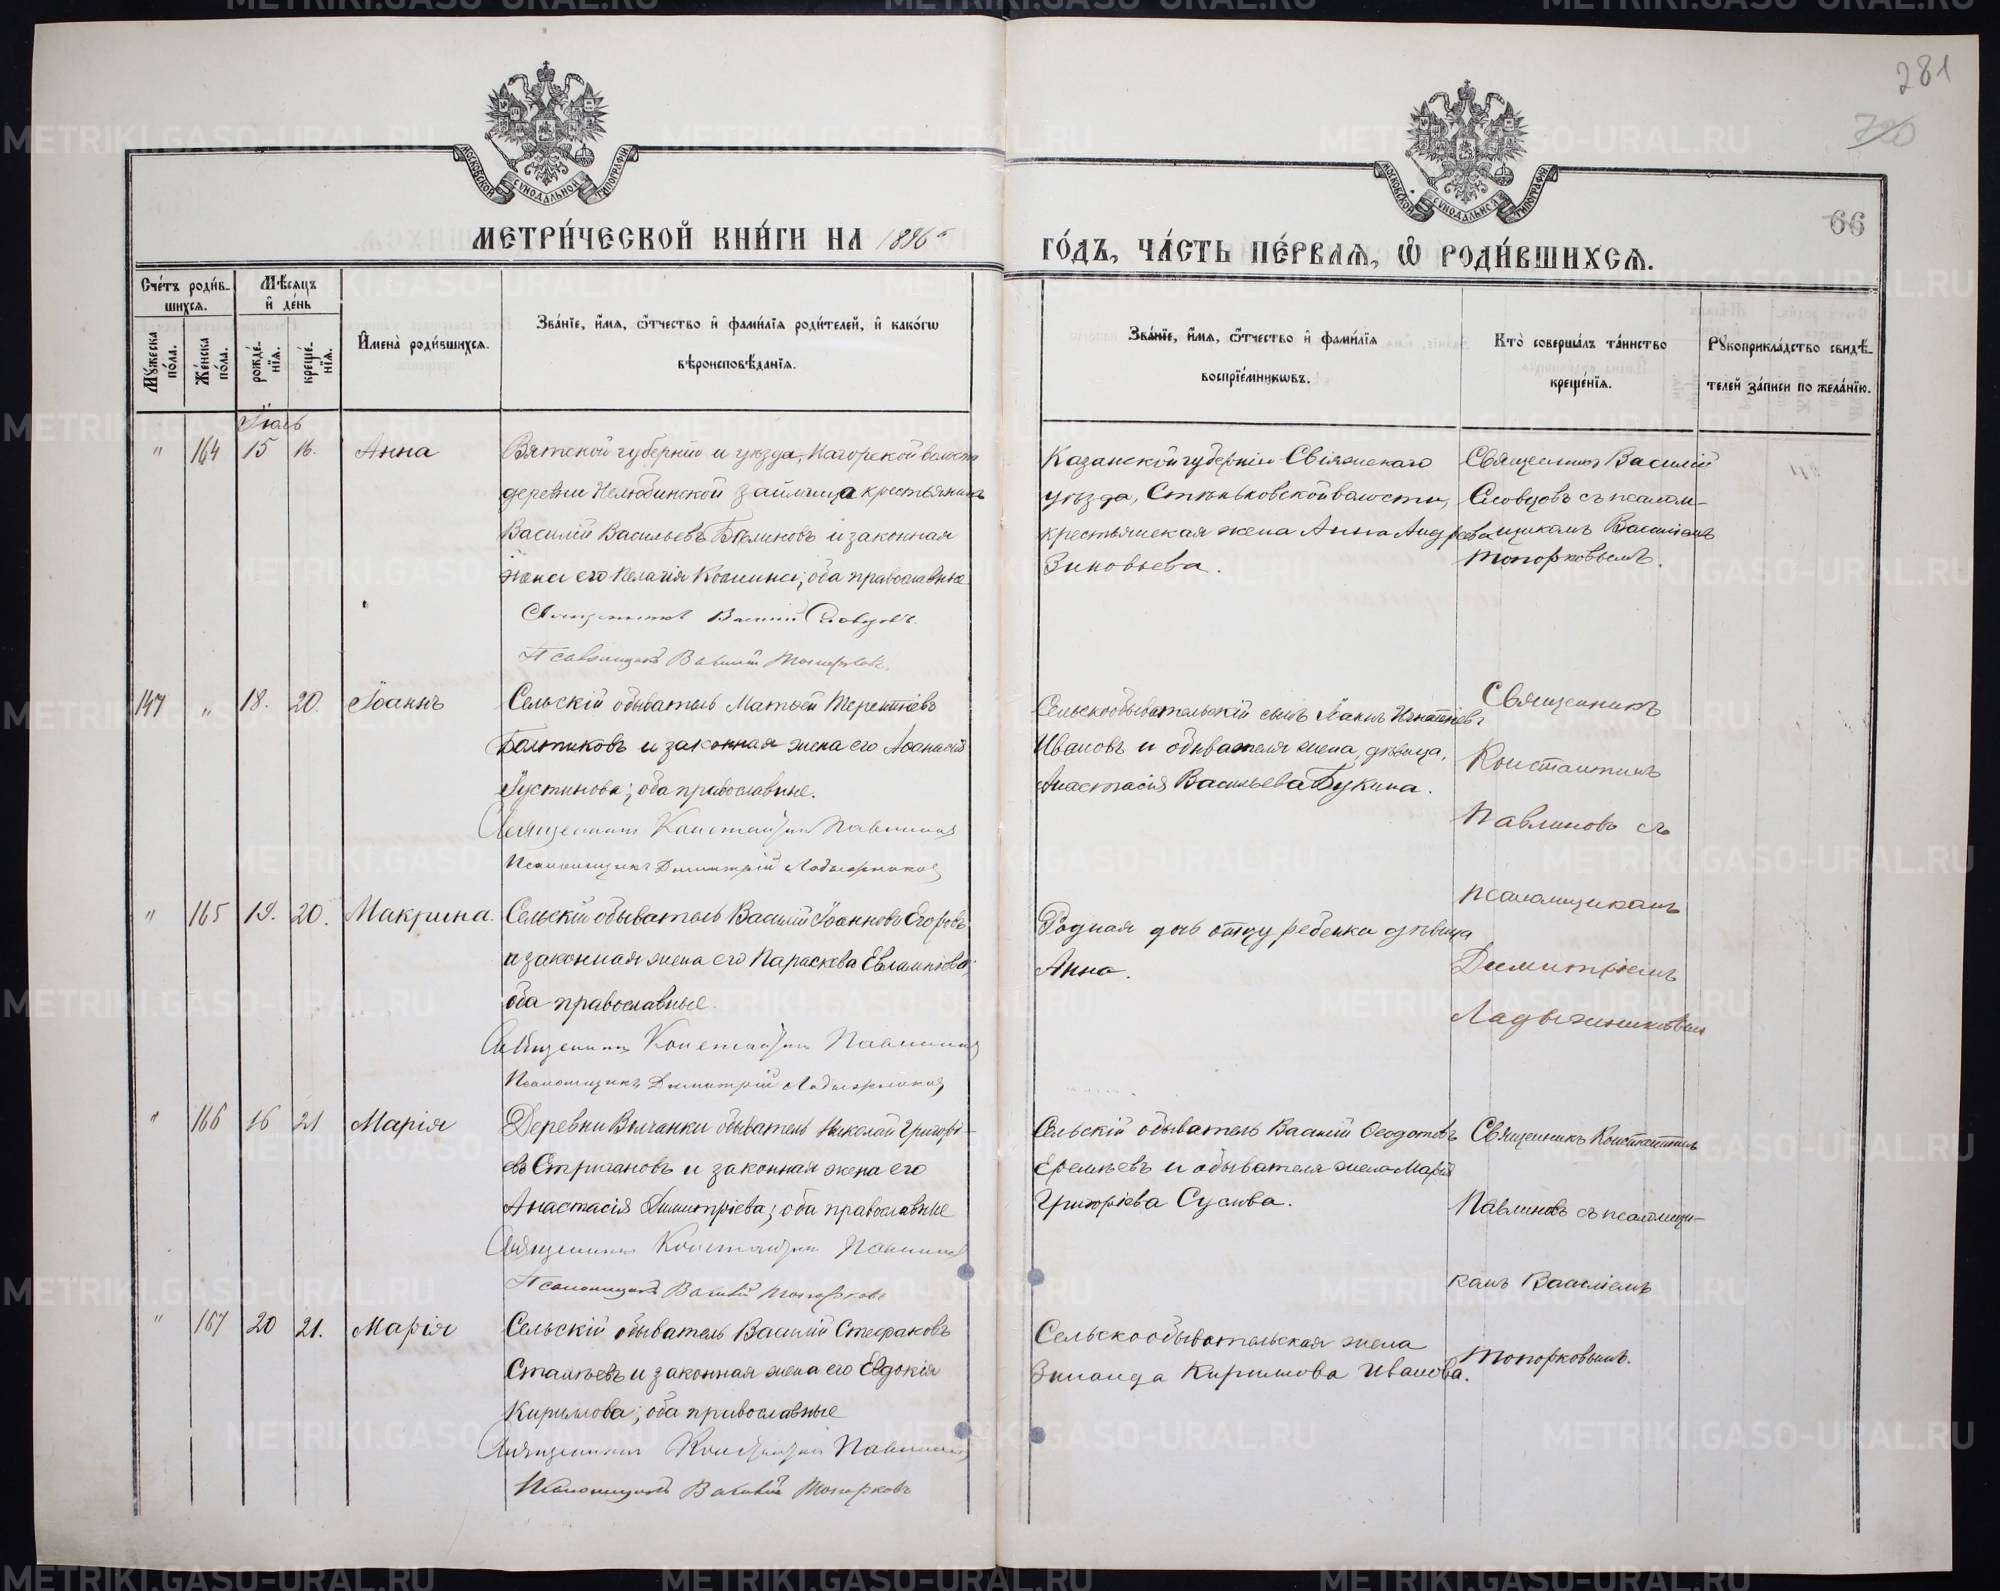 281
720
66
МОСКОВСКОЙ СѴНОДАЛЬНОЙ ТИПОГРАФІИ
МОСКОВСКОЙ СѴНОДАЛЬНОЙ ТИПОГРАФІИ
МЕТРИ́ЧЕСКОЙ КНИ́ГИ НА 1896й
ГО́ДЪ, ЧА́СТЬ ПЕ́РВАѦ, Ѽ РОДИ́ВШИХСѦ.
Сче́тъ роди́в-
шихсѧ.
Мѣ́сѧцъ
и҆ де́нь
Мꙋ́жеска
по́ла.
Же́нска
по́ла.
рожде́-
нїѧ.
креще́-
нїѧ.
И҆мена̀ роди́вшихсѧ.
Зва́нїе, и҆́мѧ, ѻ҆́тчество и҆ фами́лїѧ роди́телей, и҆ како́гѡ
вѣроисповѣ́данїѧ.
Зва́нїе, и҆́мѧ, ѻ҆́тчество и҆ фами́лїѧ
воспрїе́мникѡвъ.
Кто̀ соверша́лъ та́инство
креще́нїѧ.
Рꙋкоприкла́дство свидѣ́-
телей за́писи по жела́нїю.
Іюль
" 164 15 16. Анна
Вятской губерніи и уѣзда, Нагорской волости
деревни Нелюбинской займища крестьянинъ
Василій Васильевъ Блиновъ и законная
жена его Пелагія Козмина; оба православные
Священникъ Василій Словцовъ.
Псаломщикъ Василій Топорковъ.
Казанской губерніи Свіяжскаго
уѣзда, Стеньковской волости,
крестьянская жена Анна Андреева
Зиновьева.
Священникъ Василій
Словцовъ съ псалом-
щикомъ Василіемъ
Топорковымъ.
147 " 18. 20. Іоаннъ
Сельскій обыватель Матѳей Терентіевъ
Болтиковъ и законная жена его Аѳанасія
Іустинова; оба православные.
Священникъ Константинъ Павлиновъ
Псаломщикъ Димитрій Ладыжниковъ
Сельскообывательскій сынъ Іоаннъ Игнатіевъ
Ивановъ и обывателя жена, дѣвица,
Анастасія Васильева Букина.
Священникъ
Константинъ
Павлиновъ съ
псаломщикомъ
Димитріемъ
Ладыжниковымъ
" 165 19. 20. Макрина
Сельскій обыватель Василій Іоанновъ Егоровъ
и законная жена его Параскева Евлампіева;
оба православные.
Священникъ Константинъ Павлиновъ
Псаломщикъ Димитрій Ладыжниковъ
Родная дочь отцу ребенка дѣвица
Анна.
" 166 16 21 Марія
Деревни Волчанки обыватель Николай Григорі-
евъ Стригановъ и законная жена его
Анастасія Димитріева; оба православные
Священникъ Константинъ Павлиновъ
Псаломщикъ Василій Топорковъ
Сельскій обыватель Василій Ѳеодотовъ
Еремѣевъ и обывателя жена Марія
Григоріева Сусова.
Священникъ Константинъ
Павлиновъ съ псаломщи-
комъ Василіемъ
Топорковымъ.
" 167 20 21. Марія
Сельскій обыватель Василій Стефановъ
и законная жена его Евдокія
Кириллова; оба православные
Священникъ Константинъ Павлиновъ
Псаломщикъ Василій Топорковъ
Сельскообывательская жена
Зинаида Кириллова Иванова.
METRIKI.GASO-URAL.RU